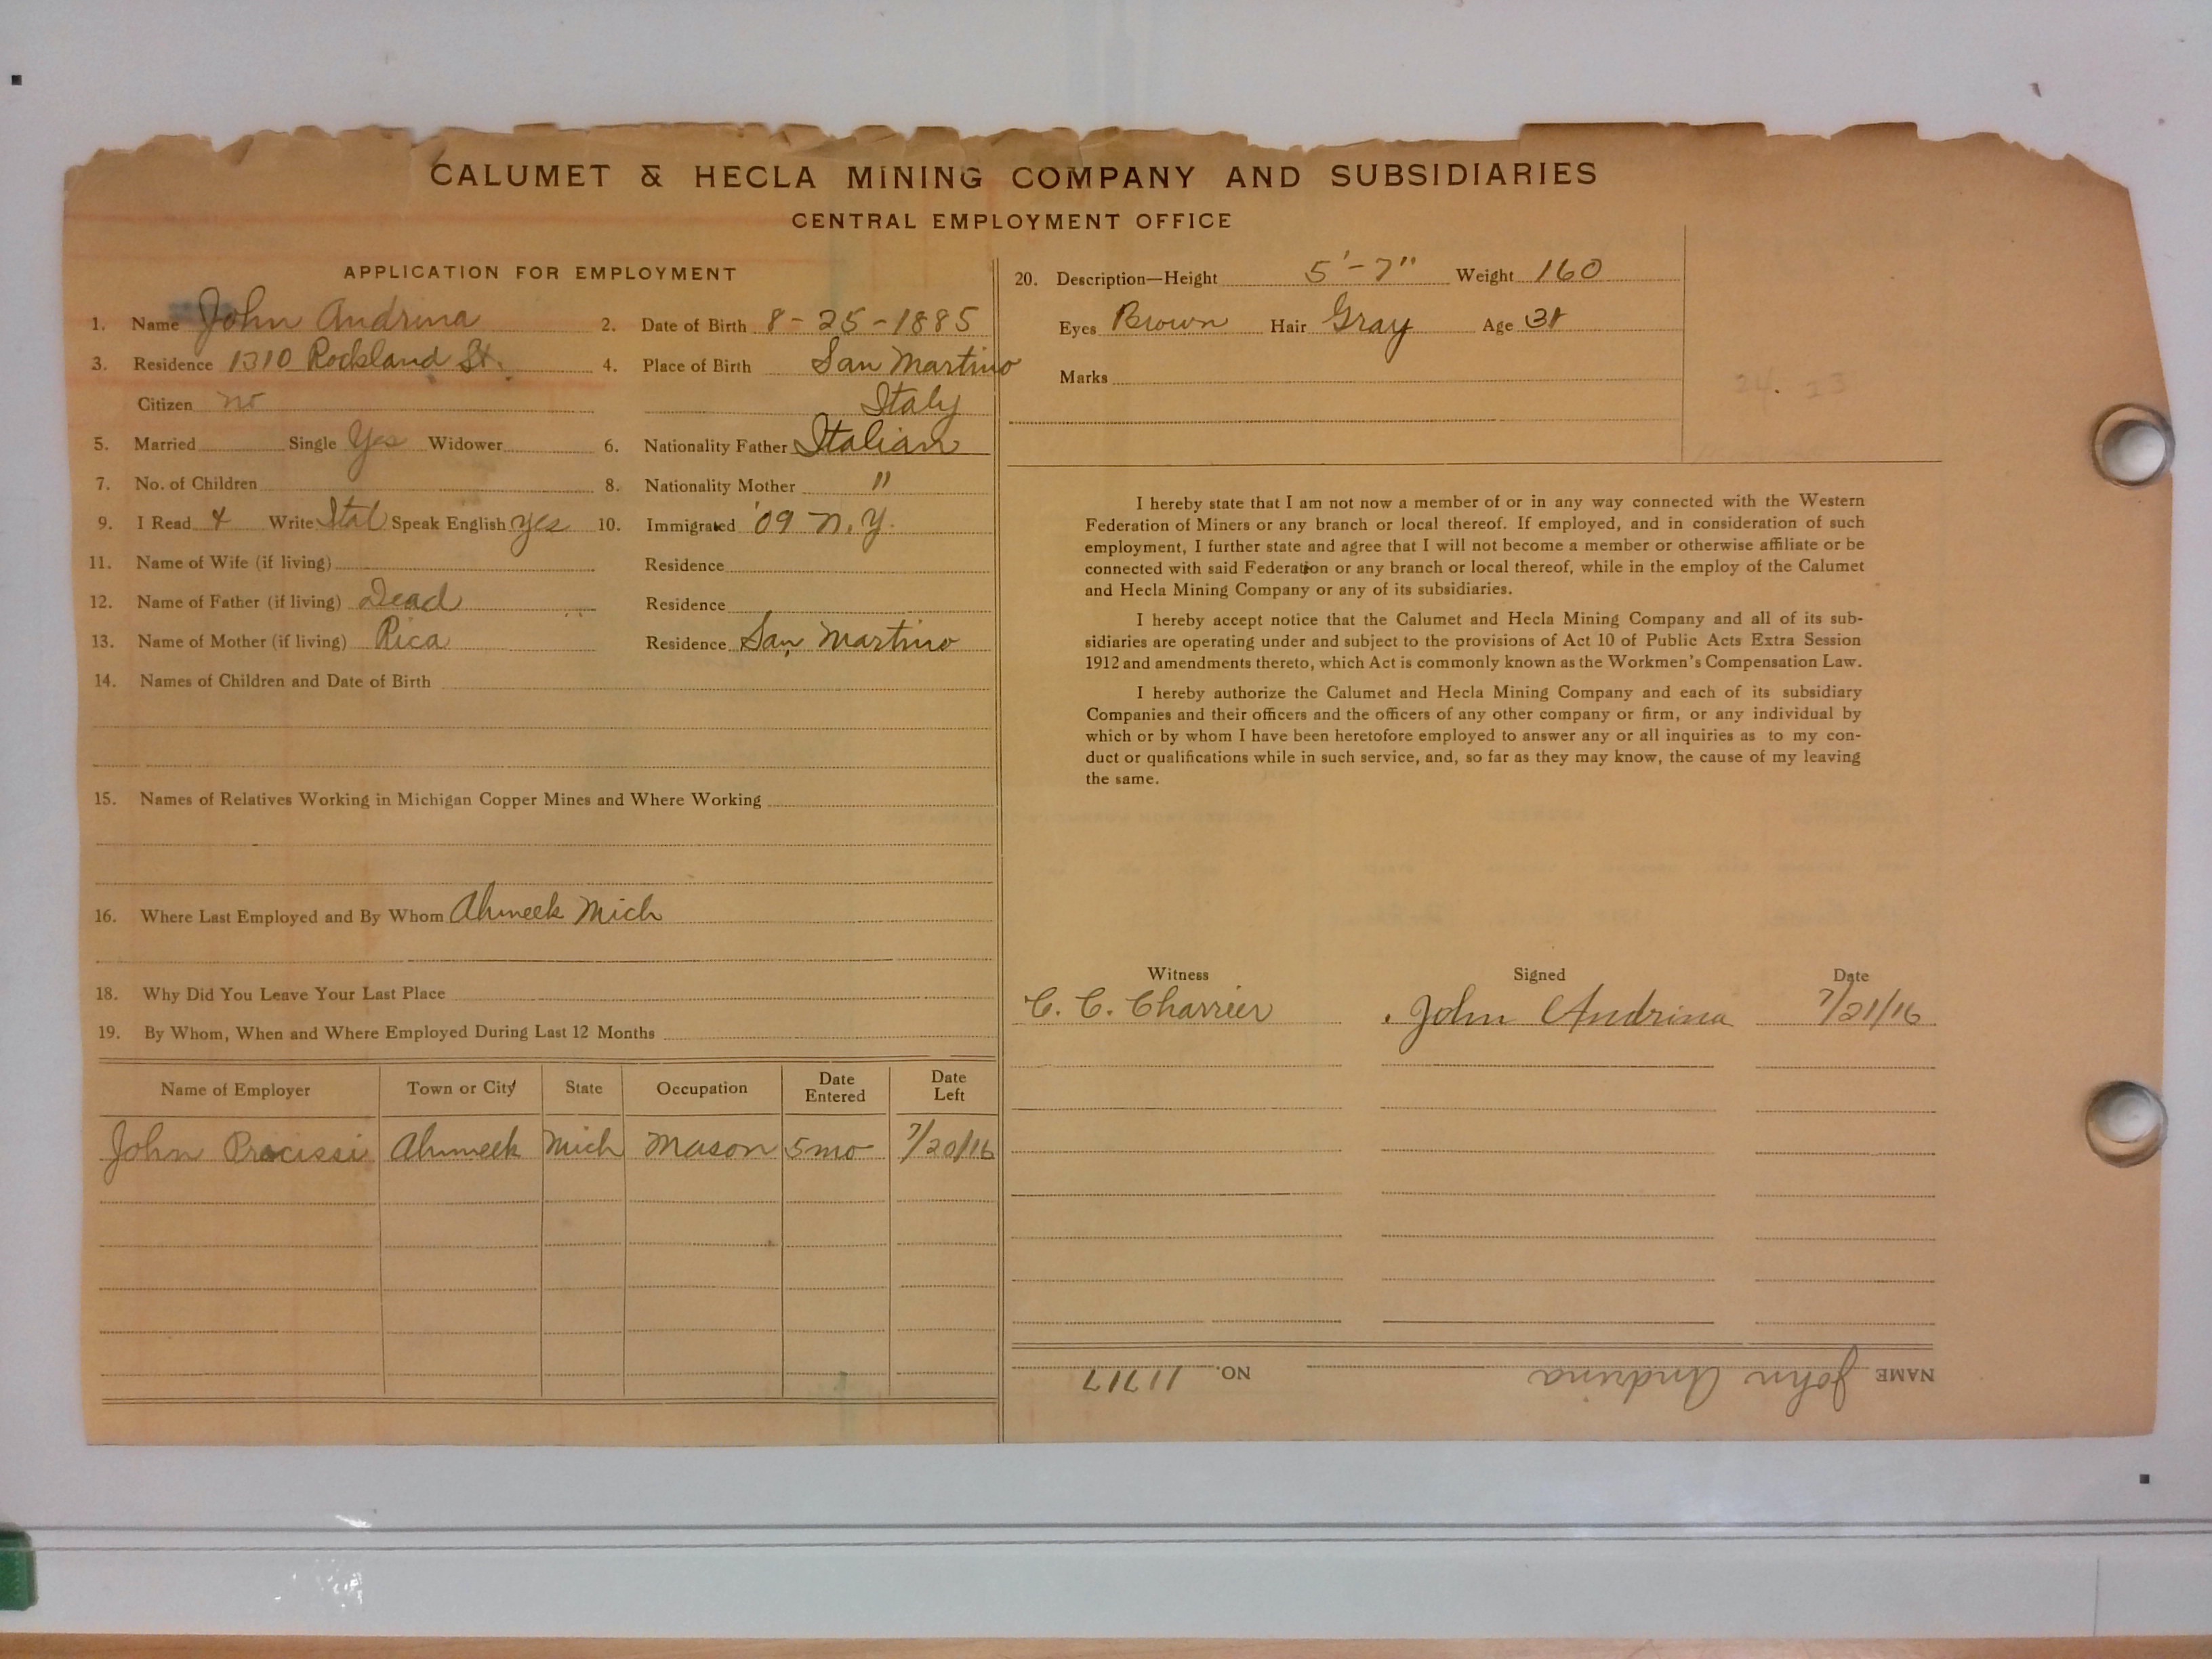 CALUMET & HECLA MINING COMPANY AND SUBSIDIARIES
CENTRAL EMPLOYMENT OFFICE
APPLICATION FOR EMPLOYMENT
1. Name John Andrina 2. Date of Birth 8-25-1885
3. Residence 1310 Rockland St. 4. Place of Birth San Martino
Citizen no Italy
5. Married Single Yes Widower 6. Nationality Father Italian
7. No. of Children 8. Nationality Mother "
9. I Read & Write Ital Speak English yes 10. Immigrated '09 N.Y.
11. Name of Wife (if living) Residence
12. Name of Father (if living) Dead Residence
13. Name of Mother (if living) Rica Residence San Martino
14. Names of Children and Date of Birth
15. Names of Relatives Working in Michigan Copper Mines and Where Working
16. Where Last Employed and By Whom Ahmeek Mich
18. Why Did You Leave Your Last Place
19. By Whom, When and Where Employed During Last 12 Months
Name of Employer Town or City State Occupation Date Entered Date Left
John Procissi Ahmeek Mich Mason 5 mo 7/20/16
20. Description—Height 5'-7" Weight 160
Eyes Brown Hair Gray Age 31
Marks
I hereby state that I am not now a member of or in any way connected with the Western
Federation of Miners or any branch or local thereof. If employed, and in consideration of such
employment, I further state and agree that I will not become a member or otherwise affiliate or be
connected with said Federation or any branch or local thereof, while in the employ of the Calumet
and Hecla Mining Company or any of its subsidiaries.
I hereby accept notice that the Calumet and Hecla Mining Company and all of its sub-
sidiaries are operating under and subject to the provisions of Act 10 of Public Acts Extra Session
1912 and amendments thereto, which Act is commonly known as the Workmen's Compensation Law.
I hereby authorize the Calumet and Hecla Mining Company and each of its subsidiary
Companies and their officers and the officers of any other company or firm, or any individual by
which or by whom I have been heretofore employed to answer any or all inquiries as to my con-
duct or qualifications while in such service, and, so far as they may know, the cause of my leaving
the same.
Witness Signed Date
C. C. Charrier John Andrina 7/21/16
NAME John Andrina NO. 11717